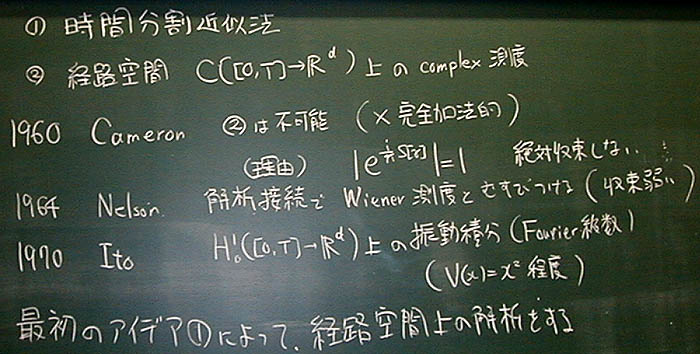 ① 時間分割近似法
② 経路空間 C([0,T]→ℝᵈ)上の complex 測度
1960 Cameron ②は不可能 (×完全加法的)
(理由) |e^{\frac{i}{ℏ}S[γ]}|=1 絶対収束しない
1964 Nelson. 解析接続で Wiener 測度とむすびつける (収束弱い)
1970 Ito H₀¹([0,T]→ℝᵈ)上の振動積分 (Fourier級数)
(V(x)=x² 程度)
最初のアイデア①によって、経路空間上の解析をする